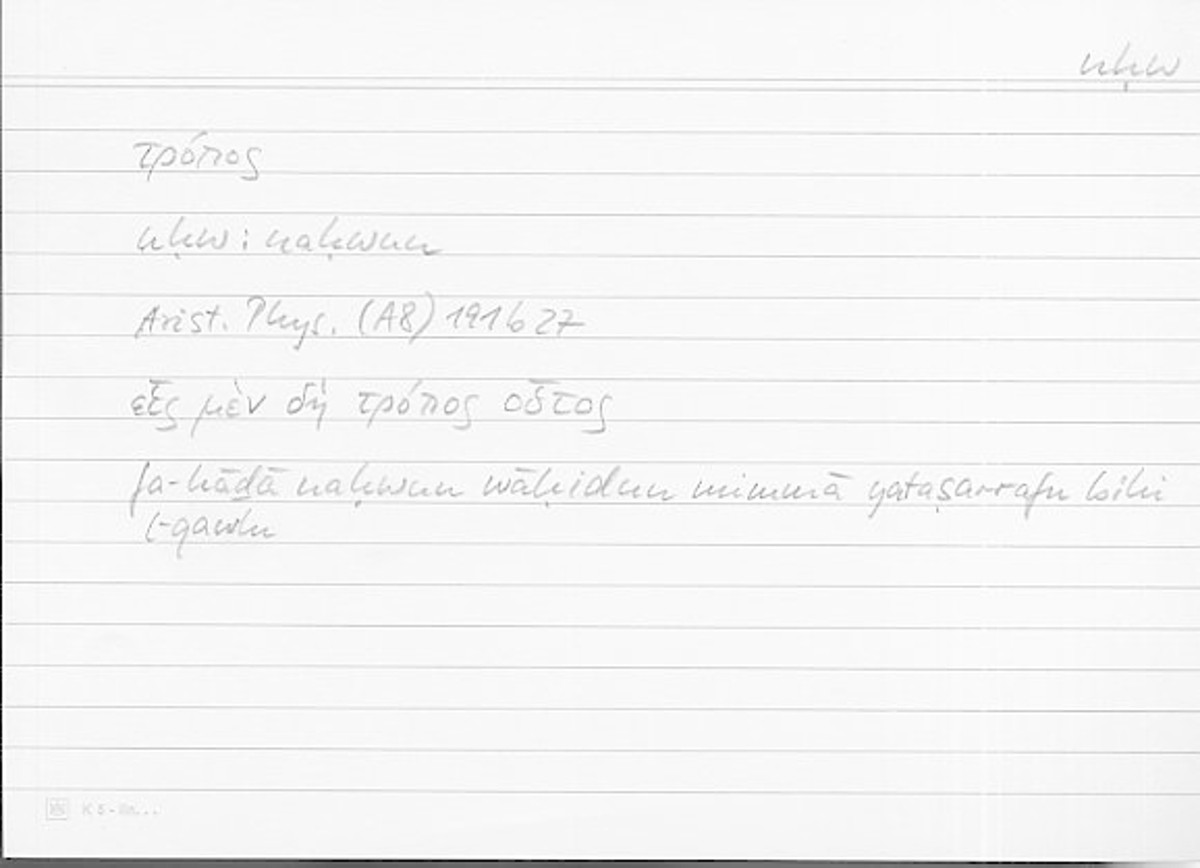 nḥw
τρόπος
nḥw : naḥwun
Arist. Phys. (A8) 191b27
εἷς μὲν δὴ τρόπος οὗτος
fa-hāḏā naḥwun wāḥidun mimmā yataṣarrafu bihi
l-qawlu
K 5 -